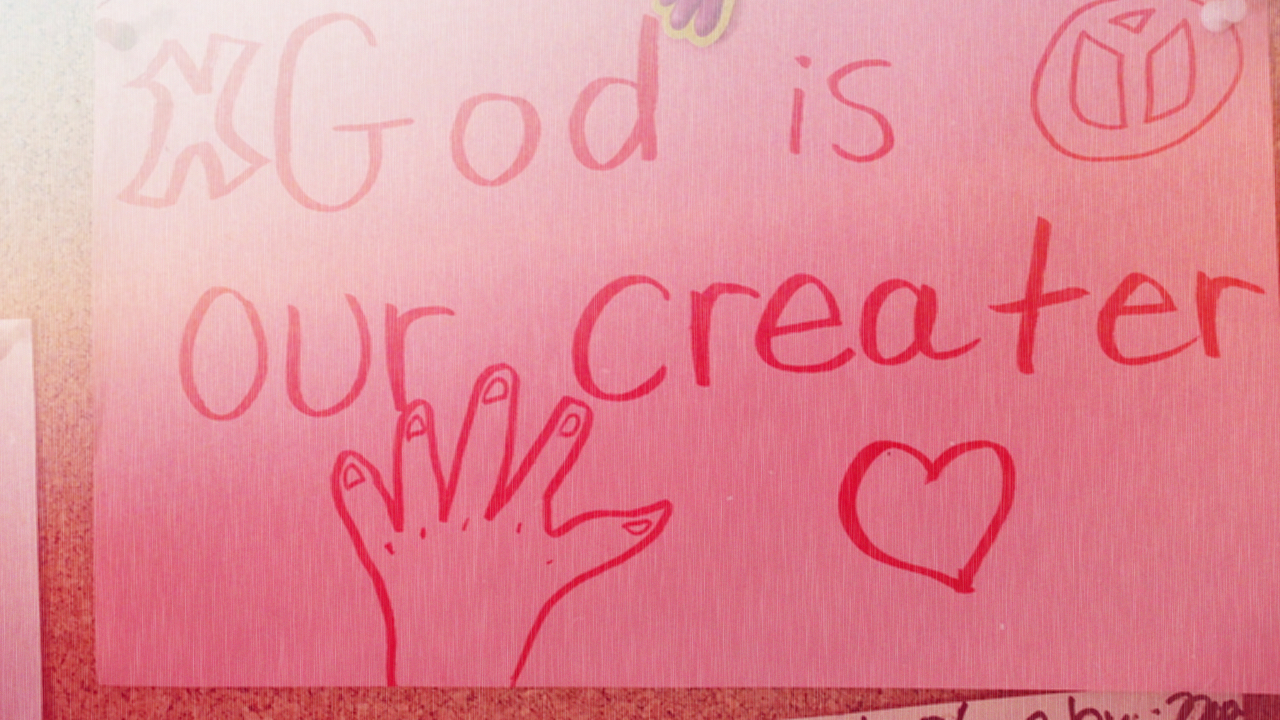 God is
our creater
by: